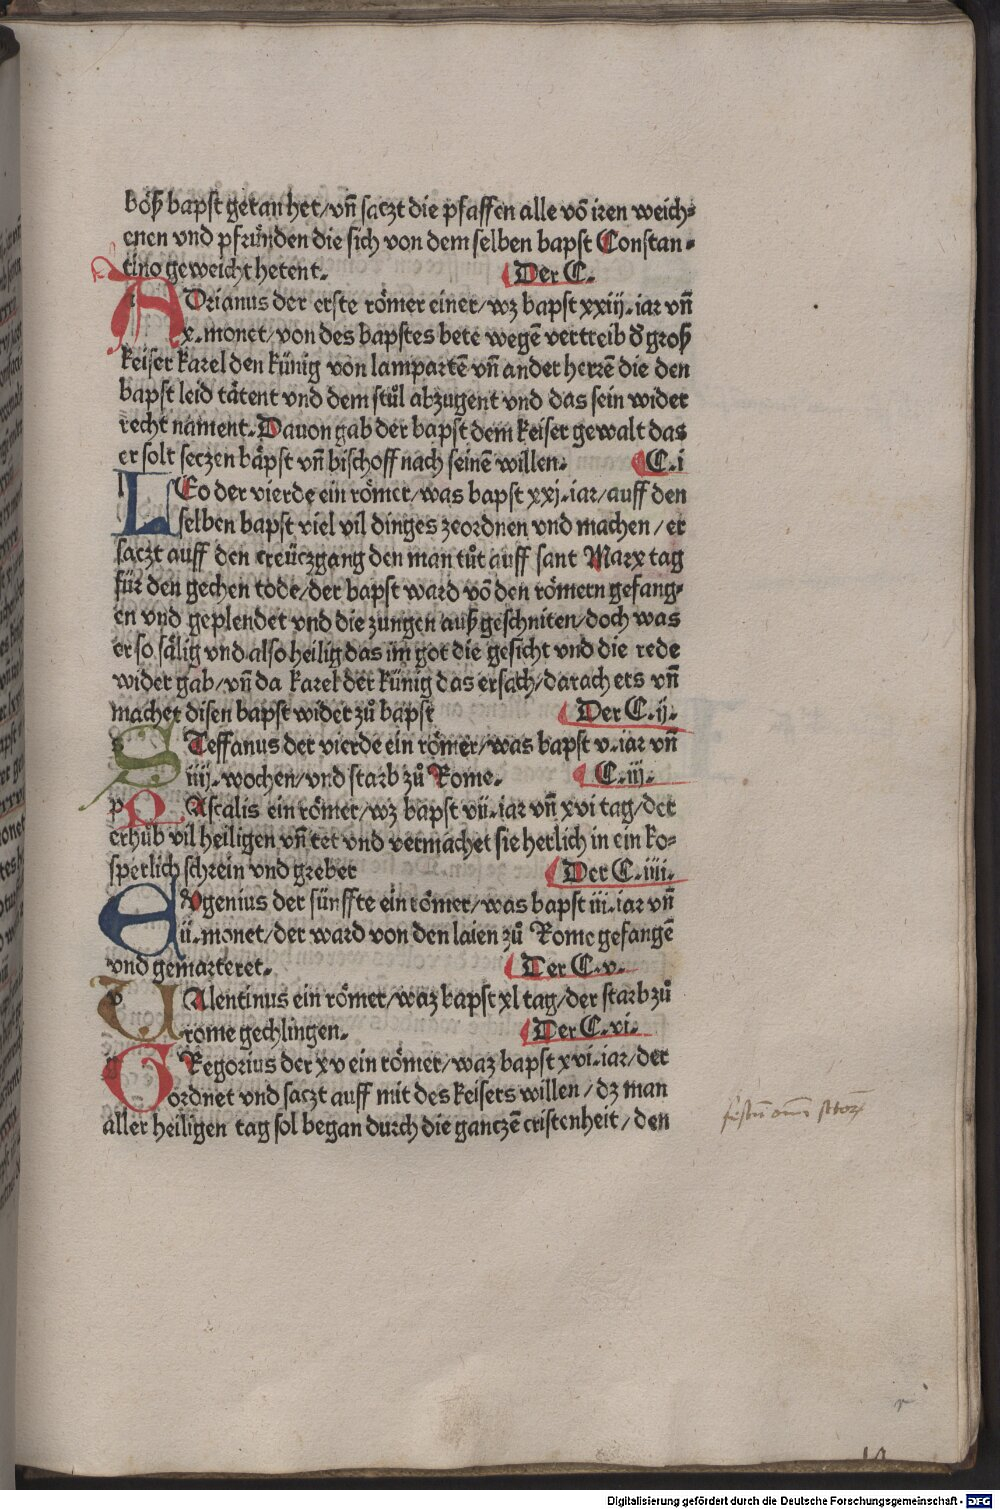 böß bapst getan het/vn̄ saczt die pfaffen alle vō iren weich⸗
enen vnd pfrůnden die sich von dem selben bapst Constan⸗
tino geweicht hetent. Der C.
ADrianus der erste römer einer/wz bapst xxiij.iar vn̄
x.monet/von des bapstes bete wegē vertreib d̕ groß
keiser karel den künig von lampartē vn̄ ander herrē die den
bapst leid tätent vnd dem stůl abzugent vnd das sein wider
recht nament. Dauon gab der bapst dem keiser gewalt das
er solt seczen bäpst vn̄ bischoff nach seinē willen. C.i
LEo der vierde ein römer/was bapst xxj.iar/auff den
selben bapst viel vil dinges zeordnen vnd machen/er
saczt auff den creüczgang den man tůt auff sant Marx tag
für den gechen tode/der bapst ward vō den römern gefang⸗
en vnd geplendet vnd die zungen auß geschniten/doch was
er so sälig vnd also heilig das im got die gesicht vnd die rede
wider gab/vn̄ da karel der künig das ersach/darach ers vn̄
machet disen bapst wider zů bapst Der C.ij.
STeffanus der vierde ein römer/was bapst v.iar vn̄
iiij.wochen/vnd starb zů Rome. C.iij.
PAscalis ein römer/wz bapst vii.iar vn̄ xvi tag/der
erhůb vil heiligen vn̄ tet vnd vermachet sie herlich in ein ko⸗
sperlich schrein vnd greber Der C.iiii.
EVgenius der fünffte ein römer/was bapst iii.iar vn̄
ii.monet/der ward von den laien zů Rome gefangē
vnd gemarteret. Der C.v.
VAlentinus ein römer/waz bapst xl tag/der starb zů
rome gechlingen. Der C.vi.
GRegorius der xv ein römer/waz bapst xvi.iar/der
ordnet vnd saczt auff mit des keisers willen/dz man
aller heiligen tag sol began durch die gantzē cristenheit/den
Digitalisierung gefördert durch die Deutsche Forschungsgemeinschaft - DFG